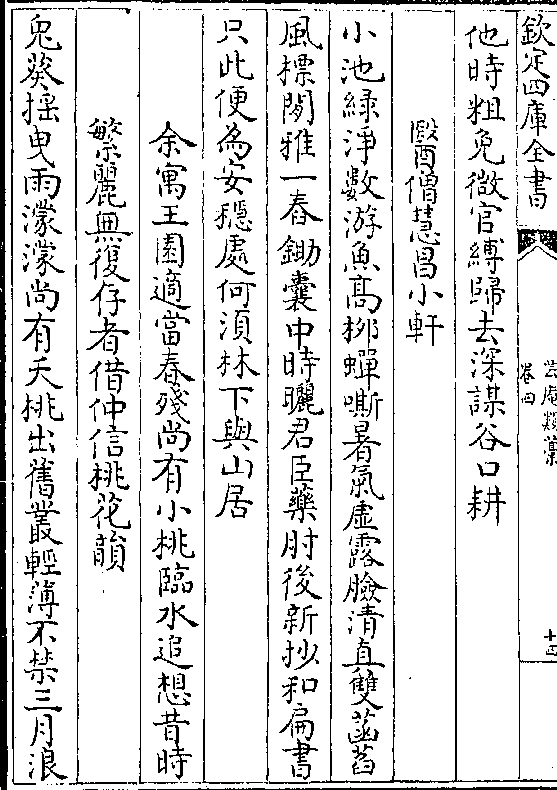 欽定四庫全書
芸庵類藁
卷四
十四
他時粗免微官縛歸去深謀谷口耕
醫僧慧昌小軒
小池綠淨數游魚髙栁蟬嘶暑氣虛露臉清真雙菡萏
風標閑雅一舂鋤囊中時曬君臣藥肘後新抄和扁書
只此便為安穩處何湏林下與山居
余寓王園適當春殘尚有小桃臨水追想昔時
繁麗無復存者借仲信桃花韻
兔葵揺曳雨濛濛尚有夭桃出舊叢輕薄不禁三月浪